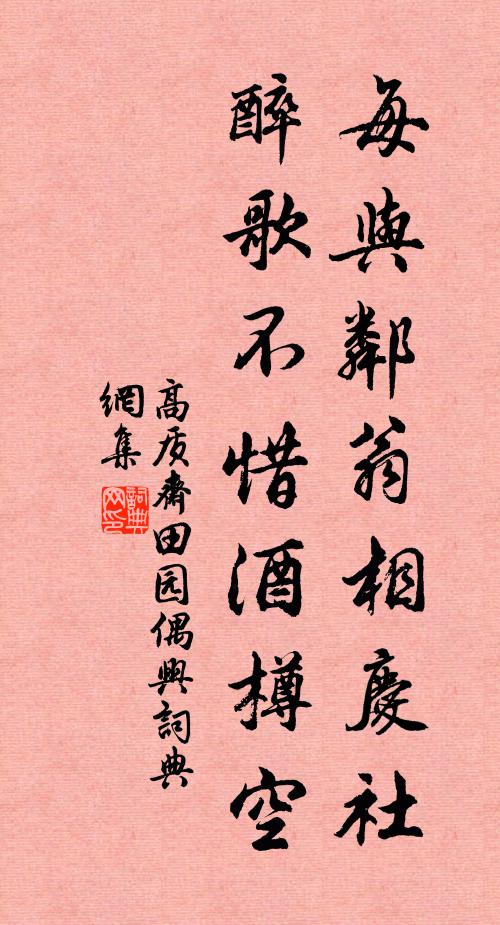 每與鄰翁相慶社
醉歌不惜酒樽空
高质斋田园偶興詞典
網集
詞典
网印